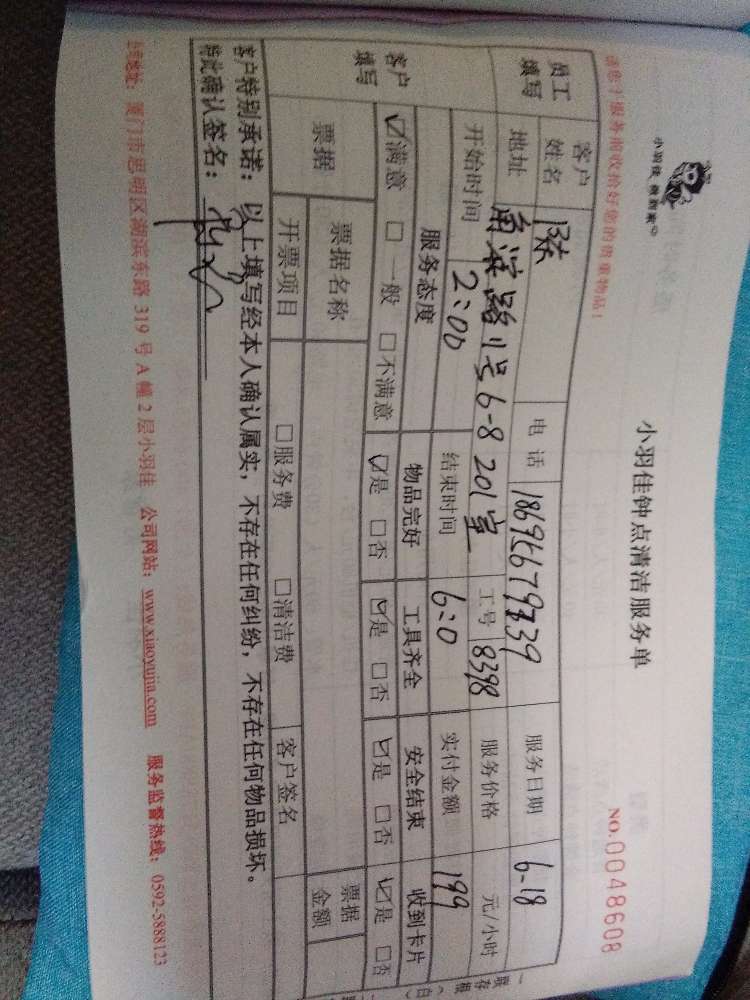 小羽佳 您到家
小羽佳钟点清洁服务单
NO.0048608
请您于服务前收拾好您的贵重物品！
员工填写 客户姓名 陈 电话 18695679339 服务日期 6-18
地址 南滨路11号6-8 201室 工号 8398 服务价格 元/小时
开始时间 2:00 结束时间 6:0 实付金额 199
客户填写 服务态度 物品完好 工具齐全 安全结束 收到卡片
☑满意 □一般 □不满意 ☑是 □否 ☑是 □否 ☑是 □否 ☑是 □否
票据 票据名称 票据金额
开票项目 □服务费 □清洁费 客户签名
客户特别承诺：以上填写经本人确认属实，不存在任何纠纷，不存在任何物品损坏。
特此确认签名：
公司地址：厦门市思明区湖滨东路319号A幢2层小羽佳 公司网站：www.xiaoyujia.com 服务监督热线：0592-5888123